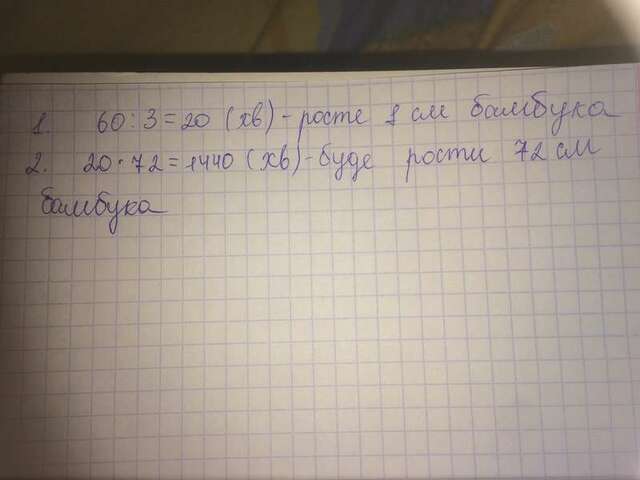 1. 60:3=20 (хв) - росте 1 см бамбука
2. 20·72=1440 (хв) - буде рости 72 см
бамбука